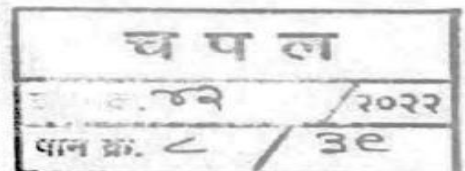 च प ल
क्र. ४२ /२०२२
पान क्र. ८ / ३९